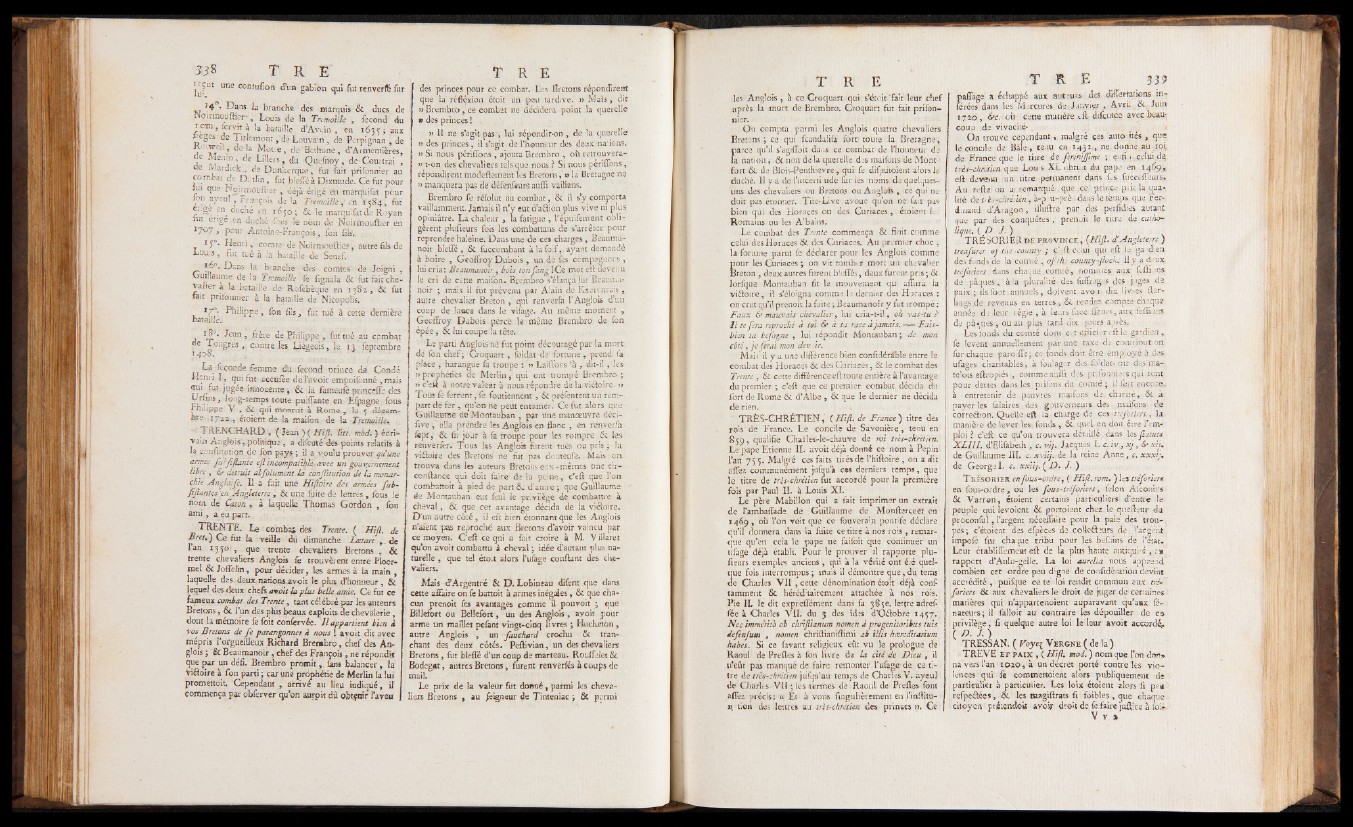 338 T R E
reçut une contusion d'un gabion qui fut renversé sur
lui.
14°. Dans la branche des marquis & ducs de
Noirmoustier, Louis de la Tremoille, second du
nom, servit à la bataille d'Avein, en 1635; aux
sièges de Tirlemont, de Louvain, de Perpignan, de
de la Motte, de Bethune, d'Armentières,
de Menin, de Lillers, du Quesnoy, de Courtrai,
de Mardick, de Dunkerque, fut fait prisonnier au
combat de fut blessé à Dixmude. Ce fut pour
lui que Noirmoustier, déjà érigé en marquisat pour
son ayeul, François de la Tremoille, en 1584, fut
érigé en duché en 1650; & le marquisat de Royan
fut érigé en duché sous le nom de Noirmoustier en
1707, pour Antoine-François, son fils.
15°. Henri, comte de Noirmoustier, autre fils de
Louis, fut tué à la bataille de Senef.
16°. Dans la branche des comtes de Joigni,
Guillaume de la Tremoille se signala & fut fait che-
valier à la bataille de Rosebèque en 1382, & fut
fait prisonnier à la bataille de Nicopolis.
17°. Philippe, son fils, fut tué à cette dernière
bataille.
18°. Jean, frère de Philippe, fut tué au combat
de Tongres, contre les Liégeois, le 23 septembre
1408.
La seconde femme du second prince de Condé
Henri I, qui fut accusée de l'avoir empoisonné, mais
qui fut jugée innocente, & la fameuse princesse des
Ursins, long-temps toute puissante en Espagne sous
Philippe V, & qui mourut à Rome, le 5 décem-
bre 1722, étoient de la maison de la Tremoille.
TRENCHARD, (Jean) (Hist. litt. mod.) écri-
vain Anglois, politique, a discuté des points relatifs à
la constitution de son pays; il a voulu prouver qu'une
armée subsistante est incompatible avec un gouvernement
libre, & détruit absolument la constitution de la monar-
chie Angloise. Il a fait une Histoire des armées sub-
sistantes en Angleterre, & une suite de lettres, sous le
nom de Caton, à laquelle Thomas Gordon, son
ami, a eu part.
TRENTE. Le combat des Trente. (Hist. de
Bret.) Ce fut la veille du dimanche Lætare, de
l'an 1350, que trente chevaliers Bretons, &
trente chevaliers Anglois se trouvèrent entre Ploer-
mel & Josselin, pour décider, les armes à la main,
laquelle des deux nations avoit le plus d'honneur, &
lequel des deux chefs avoit la plus belle amie. Ce fut ce
fameux combat des Trente, tant célébré par les auteurs
Bretons, & l'un des plus beaux exploits de chevalerie,
dont la mémoire se soit conservée. Il appartient bien à
vos Bretons de se parangonner à nous! avoit dit avec
mépris l'orgueilleux Richard Brembro, chef des An-
glois; & Beaumanoir, chef des François, ne répondit
que par un défi. Brembro promit, sans balancer, la
victoire à son parti; car une prophétie de Merlin la lui
promettoit. Cependant, arrivé au lieu indiqué, il
commença par observer qu'on auroit dû obtenir l'aveu
T R E
des princes pour ce combat. Les Bretons répondirent
que la réflexion étoit un peu tardive. » Mais, dit
» Brembro, ce combat ne décidera point la querelle
» des princes.
» Il ne s'agit pas, lui répondit-on, de la querelle
» des princes, il s'agit de l'honneur des deux nations.
» Si nous périssons, ajouta Brembro, où retrouvera-
» t-on des chevaliers tels que nous? Si nous périssons,
répondirent modestement les Bretons, » la Bretagne ne
» manquera pas de défenseurs aussi vaillans.
Brembro se résolut au combat, & il s'y comporta
vaillamment. Jamais il n'y eut d'action plus vive ni plus
opiniâtre. La chaleur, la fatigue, l'épuisement obli-
gèrent plusieurs fois les combattans de s'arrêter pour
reprendre haleine. Dans une de ces charges, Beauma-
noir blessé, & succombant à la soif, ayant demandé
à boire, Geoffroy Dubois, un de ses compagnons,
lui cria: Beaumanoir, bois ton sang! Ce mot est devenu
le cri de cette maison. Brembro s'élança sur Beauma-
noir; mais il fut prévenu par Alain de
autre chevalier Breton, qui renversa l'Anglois d'un
coup de lance dans le visage. Au même moment,
Geoffroy Dubois perce le même Brembro de son
épée, & lui coupe la tête.
Le parti Anglois ne fut point découragé par la mort
de son chef; Croquart, soldat de fortune, prend sa
place, harangue sa troupe: » Laissons là, dit-il, les
» prophéties de Merlin, qui ont trompé Brembro;
» c'est à notre valeur à nous répondre de la victoire. »
Tous se serrent, se soutiennent, & présentent un rem-
part de fer, qu'on ne peut entamer. Ce fut alors que
Guillaume de Montauban, par une manœuvre déci-
sive, alla prendre les Anglois en flanc, en renversa
sept, & fit jour à sa troupe pour les rompre & les
renverser. Tous les Anglois furent tués ou pris; la
victoire des Bretons ne fut pas douteuse. Mais on
trouva dans les auteurs Bretons eux-mêmes une cir-
constance qui doit faire de la peine, c'est que l'on
combattoit à pied de part & d'autre; que Guillaume
de Montauban eut seul le privilège de combattre à
cheval, & que cet avantage décida de la victoire.
D'un autre côté, il est bien étonnant que les Anglois
n'aient pas reproché aux Bretons d'avoir vaincu par
ce moyen. C'est ce qui a fait croire à M. Villaret
qu'on avoit combattu à cheval; idée d'autant plus na-
turelle, que tel étoit alors l'usage constant des che-
valiers.
Mais d'Argentré & D. Lobineau disent que dans
cette affaire on se battoit à armes inégales, & que cha-
cun prenoit ses avantages comme il pouvoit; que
Billefort ou Bellefort, un des Anglois, avoit pour
arme un maillet pesant vingt-cinq livres; Hucheton,
autre Anglois, un fauchard crochu & tran-
chant des deux côtés. Pestivian, un des chevaliers
Bretons, fut blessé d'un coup de marteau. Rousselet &
Bodegat, autres Bretons, furent renversés à coups de
mail.
Le prix de la valeur fut donné, parmi les cheva-
liers Bretons, au seigneur de Tinteniac; & parmi
T R E
les Anglois, à ce Croquart qui s'étoit fait leur chef
après la mort de Brembro. Croquart fut fait prison-
nier.
On compta parmi les Anglois quatre chevaliers
Bretons; ce qui scandalisa fort toute la Bretagne,
parce qu'il s'agissoit dans ce combat de l'honneur de
la nation, & non de la querelle des maisons de Mont-
fort & de Blois-Penthièvre, qui se disputoient alors le
duché. Il y a de l'incertitude sur les noms de quelques-
uns des chevaliers ou Bretons ou Anglois, ce qui ne
doit pas étonner. Tite-Live avoue qu'on ne sait pas
bien qui des Horaces ou des Curiaces, étoient les
Romains ou les Albains.
Le combat des Trente commença & finit comme
celui des Horaces & des Curiaces. Au premier choc,
la fortune parut se déclarer pour les Anglois comme
pour les Curiaces; on vit tomber mort un chevalier
Breton, deux autres furent blessés, deux furent pris; &
lorsque Montauban fit le mouvement qui assura la
victoire, il s'éloigna comme le dernier des Horaces:
on crut qu'il prenoit la fuite; Beaumanoir y fut trompé:
Faux & mauvais chevalier, lui cria-t-il, où vas-tu?
Il te sera reproché à toi & à ta race à jamais. — Fais-
bien ta besogne, lui répondit Montauban; de mon
côté, je ferai mon devoir.
Mais il y a une différence bien considérable entre le
combat des Horaces & des Curiaces, & le combat des
Trente, & cette différence est toute entière à l'avantage
du premier; c'est que ce premier combat décida du
sort de Rome & d'Albe, & que le dernier ne décida
de rien.
TRÈS-CHRÉTIEN, (Hist. de France) titre des
rois de France. Le concile de Savonière, tenu en
859, qualifie Charles-le-chauve de roi très-chrétien.
Le pape Etienne II. avoit déjà donné ce nom à Pepin
l'an 755. Malgré ces faits tirés de l'histoire, on a dit
assez communément jusqu'à ces derniers temps, que
le titre de très-chrétien fut accordé pour la première
fois par Paul II. à Louis XI.
Le père Mabillon qui a fait imprimer un extrait
de l'ambassade de Guillaume de Monsterceèt en
1469, où l'on voit que ce souverain pontife déclare
qu'il donnera dans la suite ce titre à nos rois, remar-
que qu'en cela le pape ne faisoit que continuer un
usage déjà établi. Pour le prouver il rapporte plu-
sieurs exemples anciens, qui à la vérité ont été quel-
que fois interrompus; mais il démontre que, du tems
de Charles VII, cette dénomination étoit déjà cons-
tamment & héréditairement attachée à nos rois.
Pie II. le dit expressément dans sa 385e. lettre adres-
sée à Charles VII. du 3 des ides d'Octobre 1457.
Nec immeritò ob christianum nomen à progenitoribus tuis
defensum, nomen christianissimi ab illis hæreditarium
habes. Si ce savant religieux eût vu le prologue de
Raoul de Presles à son livre de la cité de Dieu, il
n'eût pas manqué de faire remonter l'usage de ce ti-
tre de très-chrétien jusqu'au temps de Charles V. ayeul
de Charles VII; les termes de Raoul de Presles sont
assez précis: « Et à vous singulièrement en l'institu-
» tion des lettres au très-chrétien des princes ». Ce
T R E 339
passage a échappé aux auteurs des dissertations in-
sérées dans les Mercures de Janvier, Avril & Juin
1720, &c. où cette matière est discutée avec beau-
coup de vivacité.
On trouve cependant, malgré ces autorités, que
le concile de Bâle, tenu en 1432, ne donne au roi
de France que le titre de sérénissime; enfin celui de
très-chrétien que Louis XI. obtint du pape en 1469,
est devenu un titre permanent dans ses successeurs.
Au reste on a remarqué que ce prince prit la qua-
lité de très-chrétien, à-peu-près dans le temps que Fer-
dinand d'Aragon, illustre par des perfidies autant
que par des conquêtes, prenoit le titre de catho-
lique. (D. J.)
TRÉSORIER DE PROVINCE, (Hist. d'Angleterre)
treasurer of the county; c'est celui qui est le gardien
des fonds de la comté, of the county-stock. Il y a deux
trésoriers dans chaque comté, nommés aux sessions
de pâques, à la pluralité des suffrages des juges de
paix; ils sont annuels, doivent avoir dix livres ster-
lings de revenus en terres, & rendre compte chaque
année de leur régie, à leurs successeurs, aux sessions
de pâques, ou au plus tard dix jours après.
Les fonds du comté dont cet officier est le gardien,
se levent annuellement par une taxe de contribution
sur chaque paroisse; ce fonds doit être employé à des
usages charitables, à soulager des soldats ou des ma-
telots estropiés, comme aussi des prisonniers qui sont
pour dettes dans les prisons du comté; il sert encore
à entretenir de pauvres maisons de charité, & à
payer les salaires des gouverneurs des maisons de
correction. Quelle est la charge de ces trésoriers, la
manière de lever les fonds, & quel en doit être l'em-
ploi? c'est ce qu'on trouvera détaillé dans les statuts
XLIII. d'Elisabeth, c. vij. Jacques I. c. iv, xj, & xij.
de Guillaume III. c. xviij. de la reine Anne, c. xxxij.
de George I. c. xxiij. (D. J.)
TRÉSORIER en sous-ordre, (Hist. rom.) les trésoriers
en sous-ordre, ou les sous-trésoriers, selon Asconius
& Varron, étoient certains particuliers d'entre le
peuple qui levoient & portoient chez le questeur du
proconsul, l'argent nécessaire pour la paie des trou-
pes; c'étoient des espèces de collecteurs de l'argent
imposé sur chaque tribu pour les besoins de l'état.
Leur établissement est de la plus haute antiquité, au
rapport d'Aulu-gelle. La loi aurelia nous apprend
combien cet ordre peu digne de considération devint
accrédité, puisque cette loi rendit commun aux tré-
soriers & aux chevaliers le droit de juger de certaines
matières qui n'appartenoient auparavant qu'aux sé-
nateurs; il falloit au contraire les dépouiller de ce
privilège, si quelque autre loi le leur avoit accordé.
(D. J.)
TRESSAN. (Voyez VERGNE (de la)
TRÊVE ET PAIX, (Hist. mod.) nom que l'on don-
na vers l'an 1020, à un décret porté contre les vio-
lences qui se commettoient alors publiquement de
particulier à particulier. Les loix étoient alors si peu
respectées, & les magistrats si foibles, que chaque
citoyen prétendoit avoir droit de se faire justice à soi-
V v 2